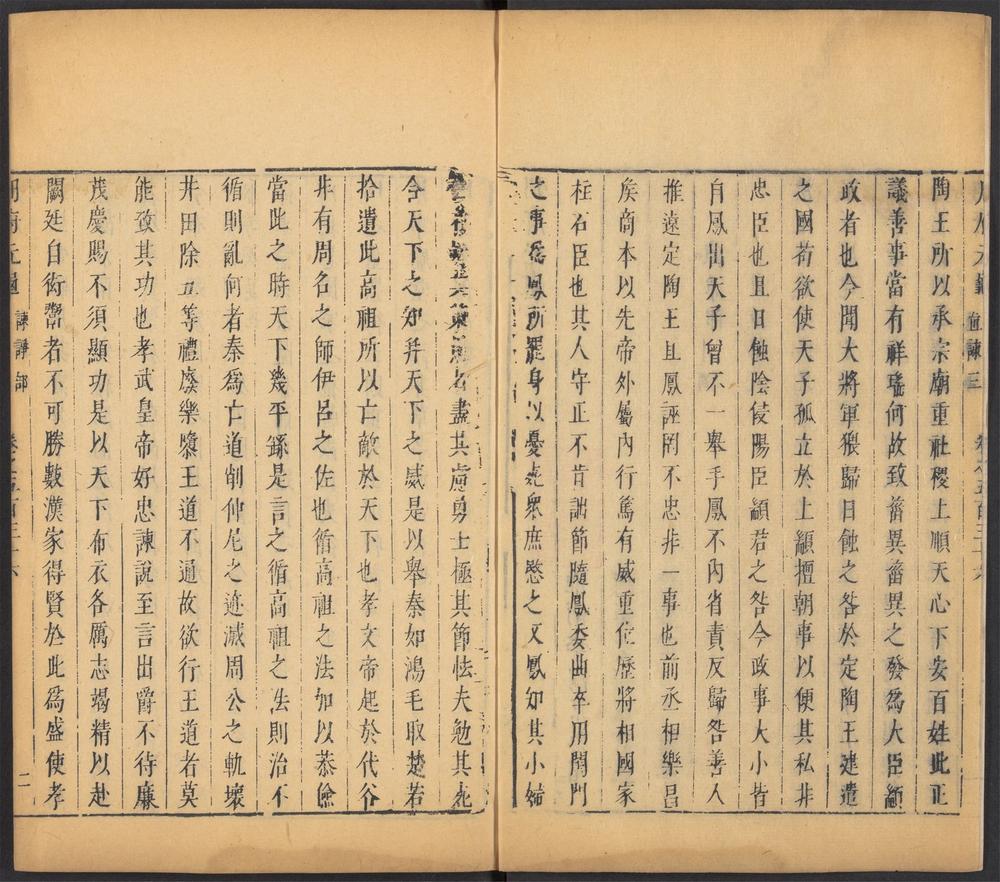 直諫三
陶王所以承宗廟重社稷上順天心下安百姓此正
議善事當有祥瑞何故致菑異菑異之發爲大臣顓
政者也今聞大將軍猥歸日蝕之咎於定陶王建遣
之國苟欲使天子孤立於上顓擅朝事以便其私非
忠臣也且日蝕陰侵陽臣顓君之咎今政事大小皆
自鳳出天子曾不一舉手鳳不內省責反歸咎善人
推遠定陶王且鳳誣罔不忠非一事也前丞相樂昌
矦商本以先帝外屬內行篤有威重位歷將相國家
柱石臣也其人守正不肯詘節隨鳳委曲卒用閨門
之事爲鳳所罷身以憂死衆庶愍之又鳳知其小婦
盡其慮勇士極其節怯夫勉其死
合天下之知并天下之威是以舉秦如鴻毛取楚若
拾遺此高祖所以亡敵於天下也孝文帝起於代谷
非有周名之師伊呂之佐也循高祖之法加以恭儉
當此之時天下幾平繇是言之循高祖之法則治不
循則亂何者秦爲亡道削仲尼之迹滅周公之軌壞
井田除五等禮廢樂隳王道不通故欲行王道者莫
能致其功也孝武皇帝好忠諫說至言出爵不待廉
茂慶賜不須顯功是以天下布衣各厲志竭精以赴
闕廷自衒鬻者不可勝數漢家得賢於此爲盛使孝
諫諍部 二